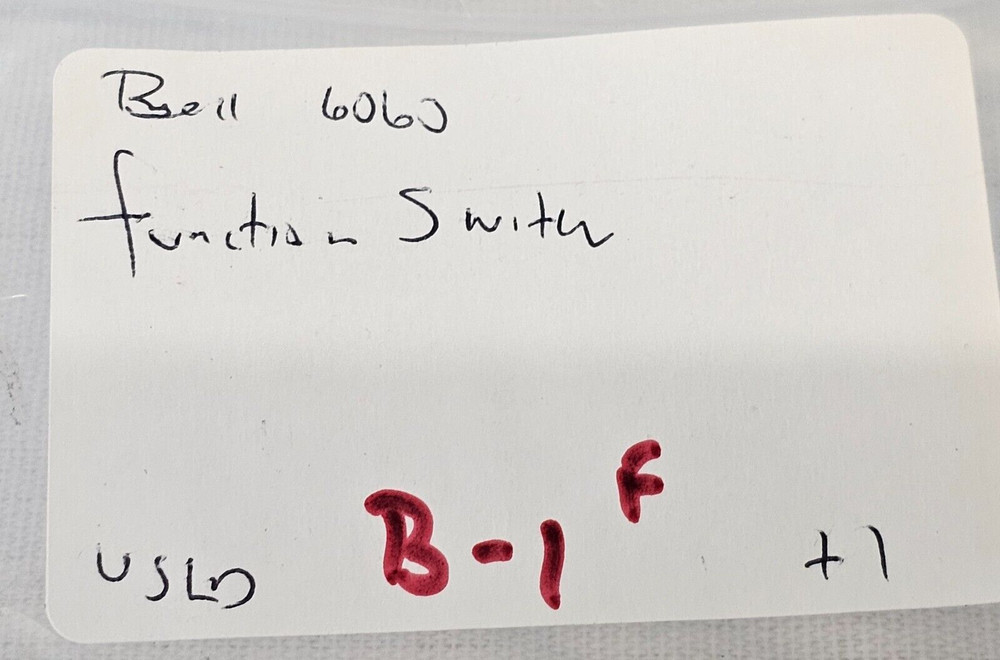 Bell 6060
function Switch
USED B-1 F +1